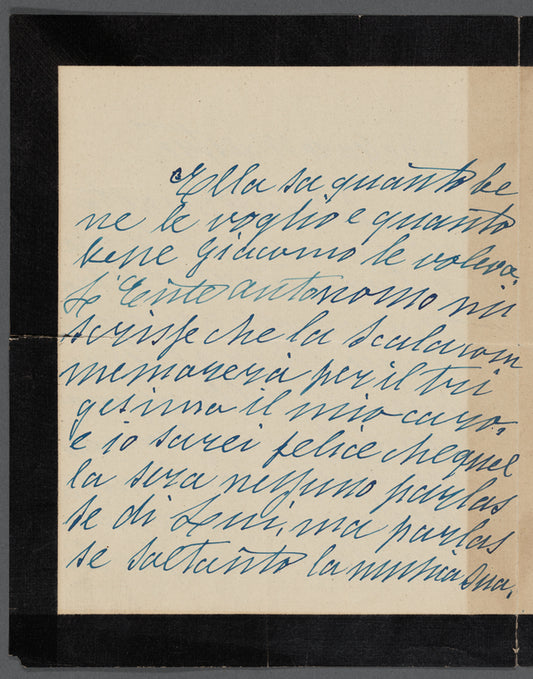 Ella sa quanto be
ne le voglio e quanto
bene Giacomo le voleva.
L'Ente autonomo mi
scrisse che la Scala com
memorerà per il tri
gesimo il mio caro,
e io sarei felice che quel
la sera nessuno parlas
se di Lui, ma parlas
se soltanto la musica Sua.